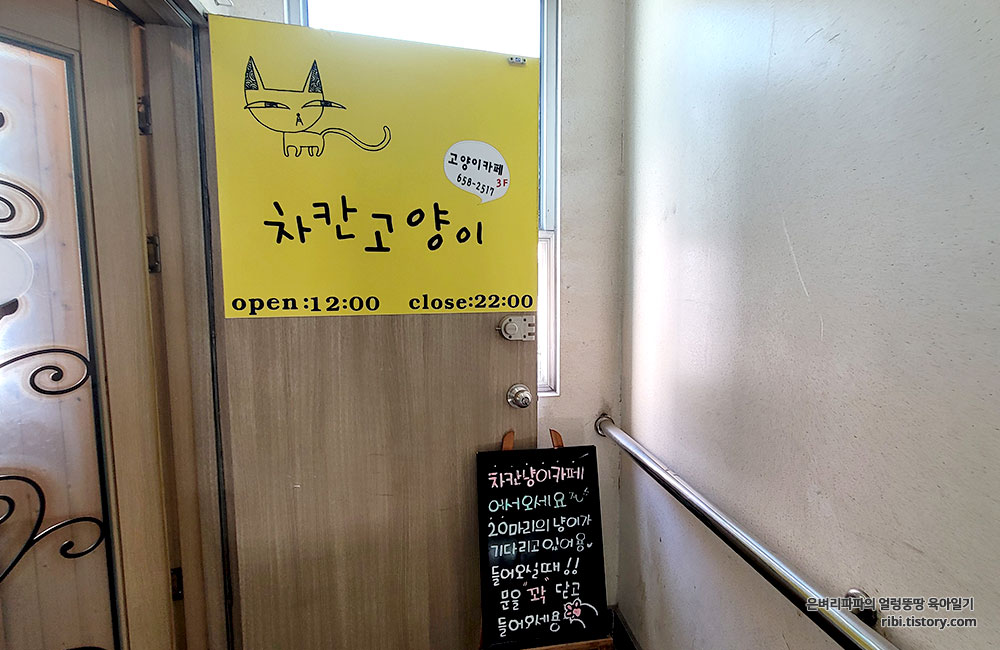 고양이카페
658-2517 3F
차칸고양이
open:12:00 close:22:00
차칸냥이카페
어서오세요
20마리의 냥이가
기다리고있어용
들어오실때!!
문을 "꽉" 닫고
들어오세용
은벼리파파의 얼렁뚱땅 육아일기
ribi.tistory.com